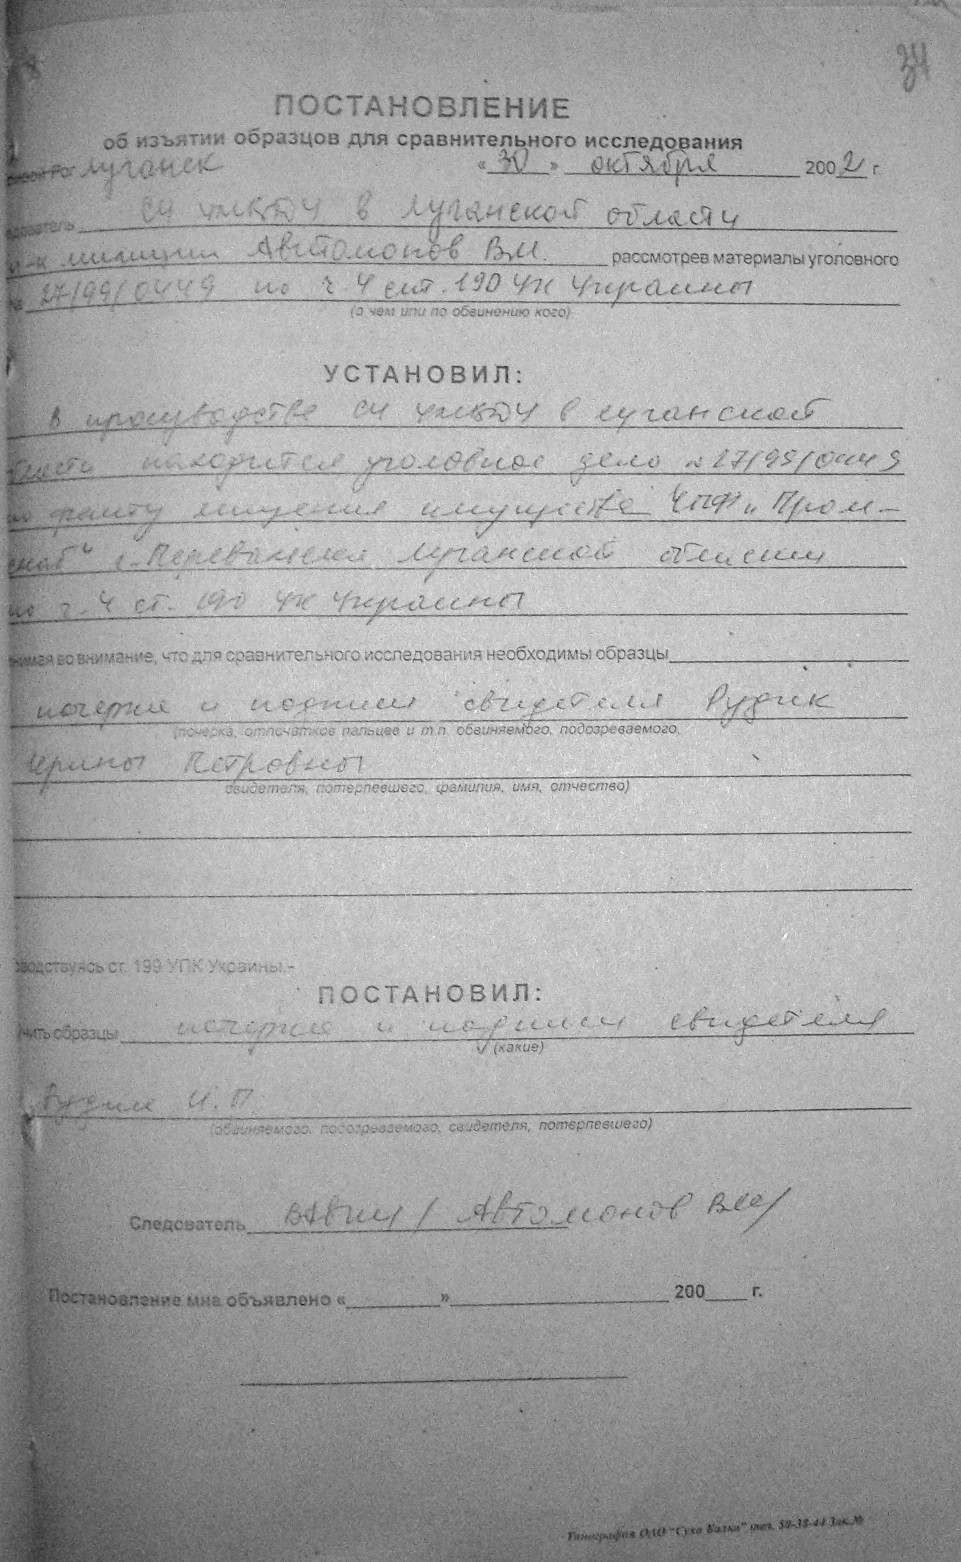 34
ПОСТАНОВЛЕНИЕ
об изъятии образцов для сравнительного исследования
Рог Луганск «30» октября 2002 г.
дователь СЧ УМВД У в Луганской области
м-к милиции Автомонов В.М. рассмотрев материалы уголовного
27/99/0449 по ч 4 ст. 190 УК Украины
(о чем или по обвинению кого)
УСТАНОВИЛ:
В производстве СЧ в Луганской
области находится уголовное дело № 27/99/0449
по факту хищения имущества ЧПФ "Пром-
снаб" г. Перевальска Луганской области
по ч. 4 ст. 190 УК Украины
нимая во внимание, что для сравнительного исследования необходимы образцы
почерка и подписи свидетеля Рудик
(почерка, отпечатков пальцев и т.п. обвиняемого, подозреваемого,
Ирины Петровны
свидетеля, потерпевшего, фамилия, имя, отчество)
водствуясь ст. 199 УПК Украины,-
ПОСТАНОВИЛ:
чить образцы почерка и подписи свидетеля
(какие)
Рудик И.П.
(обвиняемого, подозреваемого, свидетеля, потерпевшего)
Следователь / Автомонов В.М./
Постановление мне объявлено «________»____________ 200____ г.
Типография ОАО "Сухая Балка" тел. 58-38-44 Зак.№